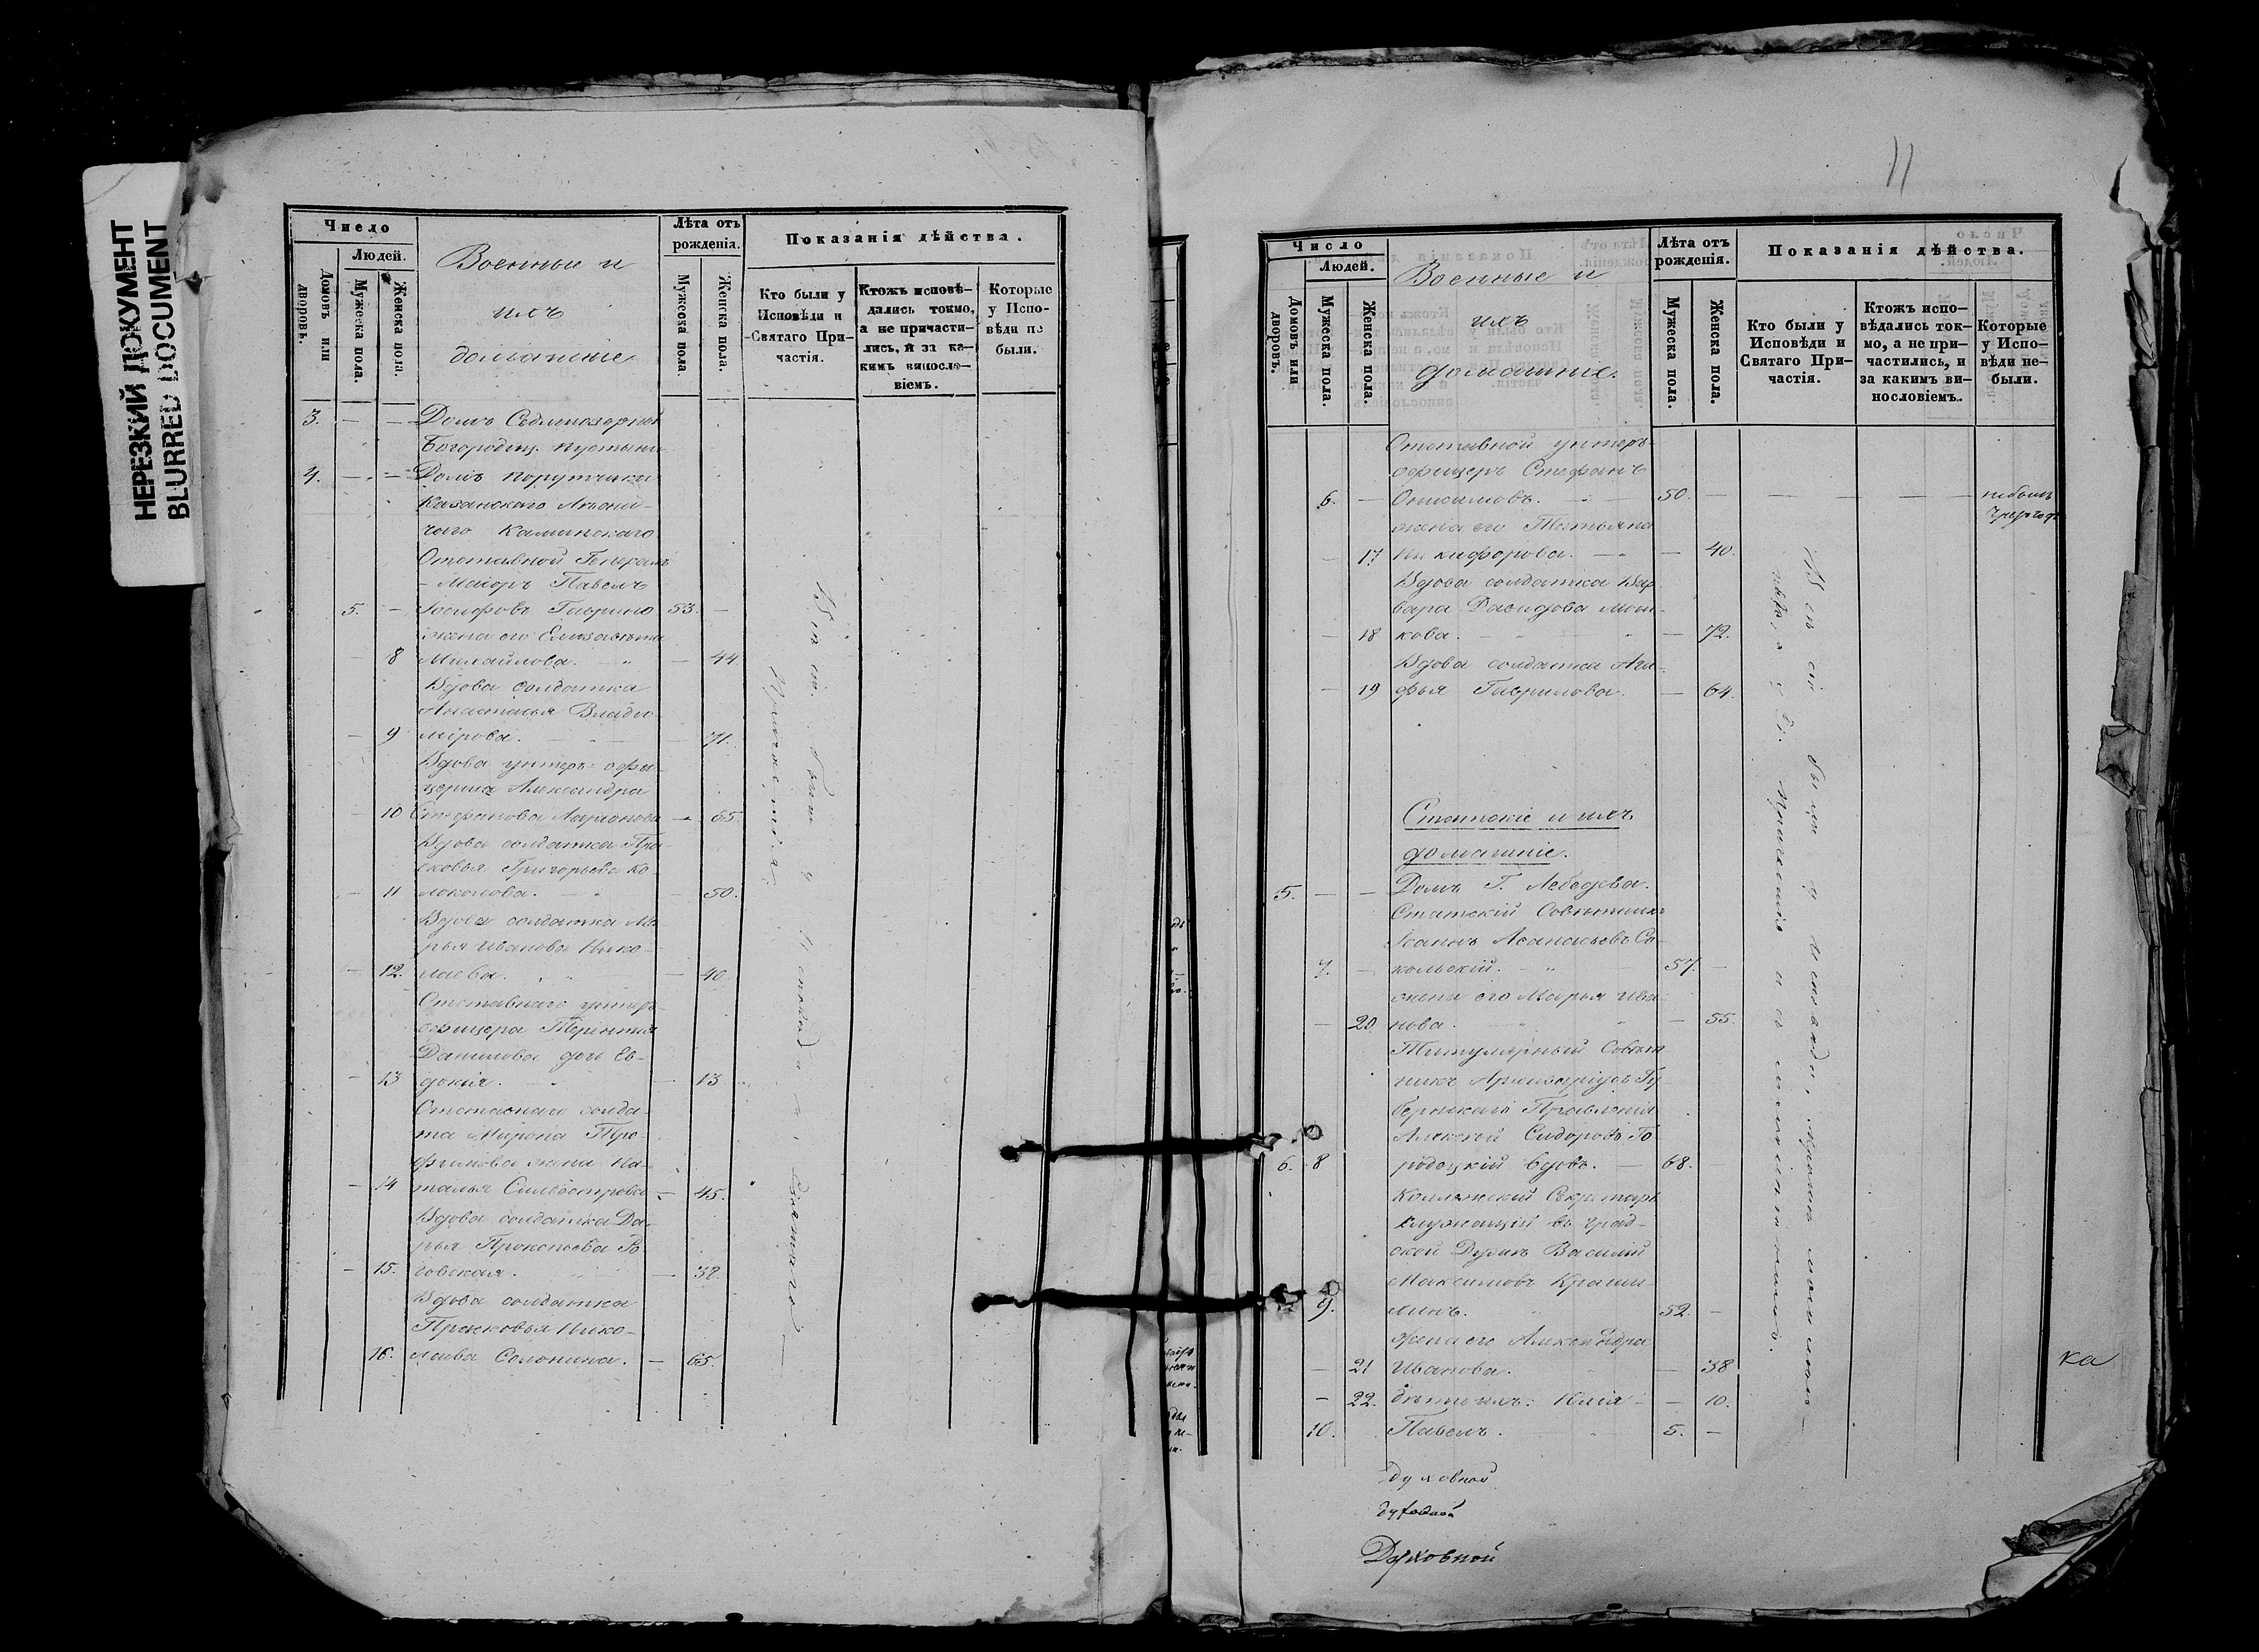 НЕРЕЗКИЙ ДОКУМЕНТ
BLURRED DOCUMENT
Число
Людей.
Домовъ или дворовъ.
Мужеска пола.
Женска пола.
Военные и
ихъ
домашніе
Лѣта отъ рожденія.
Мужеска пола.
Женска пола.
Показанія дѣйства.
Кто были у Исповѣди и Святаго Причастія.
Ктожъ исповѣдались токмо, а не причастились, и за какимъ винословіемъ.
Которые у Исповѣди не были.
3. — — Домъ Седьмиозерной
Богородиц. пустыни
4. — — Домъ порутчика
Казанского
Каминскаго
Отставной Генералъ
-Маіоръ Павелъ
5. — Іосифовъ Гаврино 53. —
жена его Елизавета
— 8 Михайлова. — 44.
Вдова солдатка
Анастасья Влади-
— 9 мірова. — 71.
Вдова унтеръ-офи-
церша Александра
— 10 Стефанова Ларионова — 65.
Вдова солдатка Пра-
сковья Григорьева Ко-
— 11 локолова. — 50.
Вдова солдатка Ма-
рья Иванова Нико-
— 12. лаева. — 40.
Отставнаго унтеръ-
офицера Терентия
Данилова дочь Ев-
— 13 докія. — 13
Отставнаго солда-
та Мирона Тро-
фимова жена На-
— 14 талья Сильвестрова — 45.
Вдова солдатка Да-
рья Прокопьева Ро-
— 15. говская. — 38.
Вдова солдатка
Прасковья Нико-
16. лаева Солонина. — 65.
Всѣ сіи были у Исповѣди и Святаго
Причастія.
11
Число
Людей.
Домовъ или дворовъ.
Мужеска пола.
Женска пола.
Военные и
ихъ
домашніе.
Лѣта отъ рожденія.
Мужеска пола.
Женска пола.
Показанія дѣйства.
Кто были у Исповѣди и Святаго Причастія.
Ктожъ исповѣдались токмо, а не причастились, и за какимъ винословіемъ.
Которые у Исповѣди небыли.
Отставной унтеръ-
офицеръ Стефанъ
6. — Онисимовъ. — 50. — — — — небылъ
жена его Татьяна
— 17 Никифорова. — — 40.
Вдова солдатка Вар-
вара Давидова Мош-
— 18 кова. — 72.
Вдова солдатка Ага-
— 19 фья Гаврилова. — 64.
Статскіе и ихъ
домашніе.
5. — — Домъ Г. Лебедева.
Статскій Совѣтникъ
Іоаннъ Аѳанасьевъ Со-
7. — кольскій. 57. —
жена его Марья Ива-
— 20 нова. — 55.
Титулярный Совѣт-
никъ Архиваріусъ Гу-
бернскаго Правленія
Алексей Сидоровъ Го-
6. 8 родецкій вдовъ. — 68. —
Коллежскій Секретарь
служащій въ град-
ской Думѣ Василій
Максимовъ Краши-
9. нинъ. 52. —
жена его Александра
— 21 Иванова. — 38
— 22. дѣти ихъ: Юлія — — 10.
10. Павелъ. 5. —
Всѣ сіи были у Исповѣди,
ка
духовной
духовной
Духовной